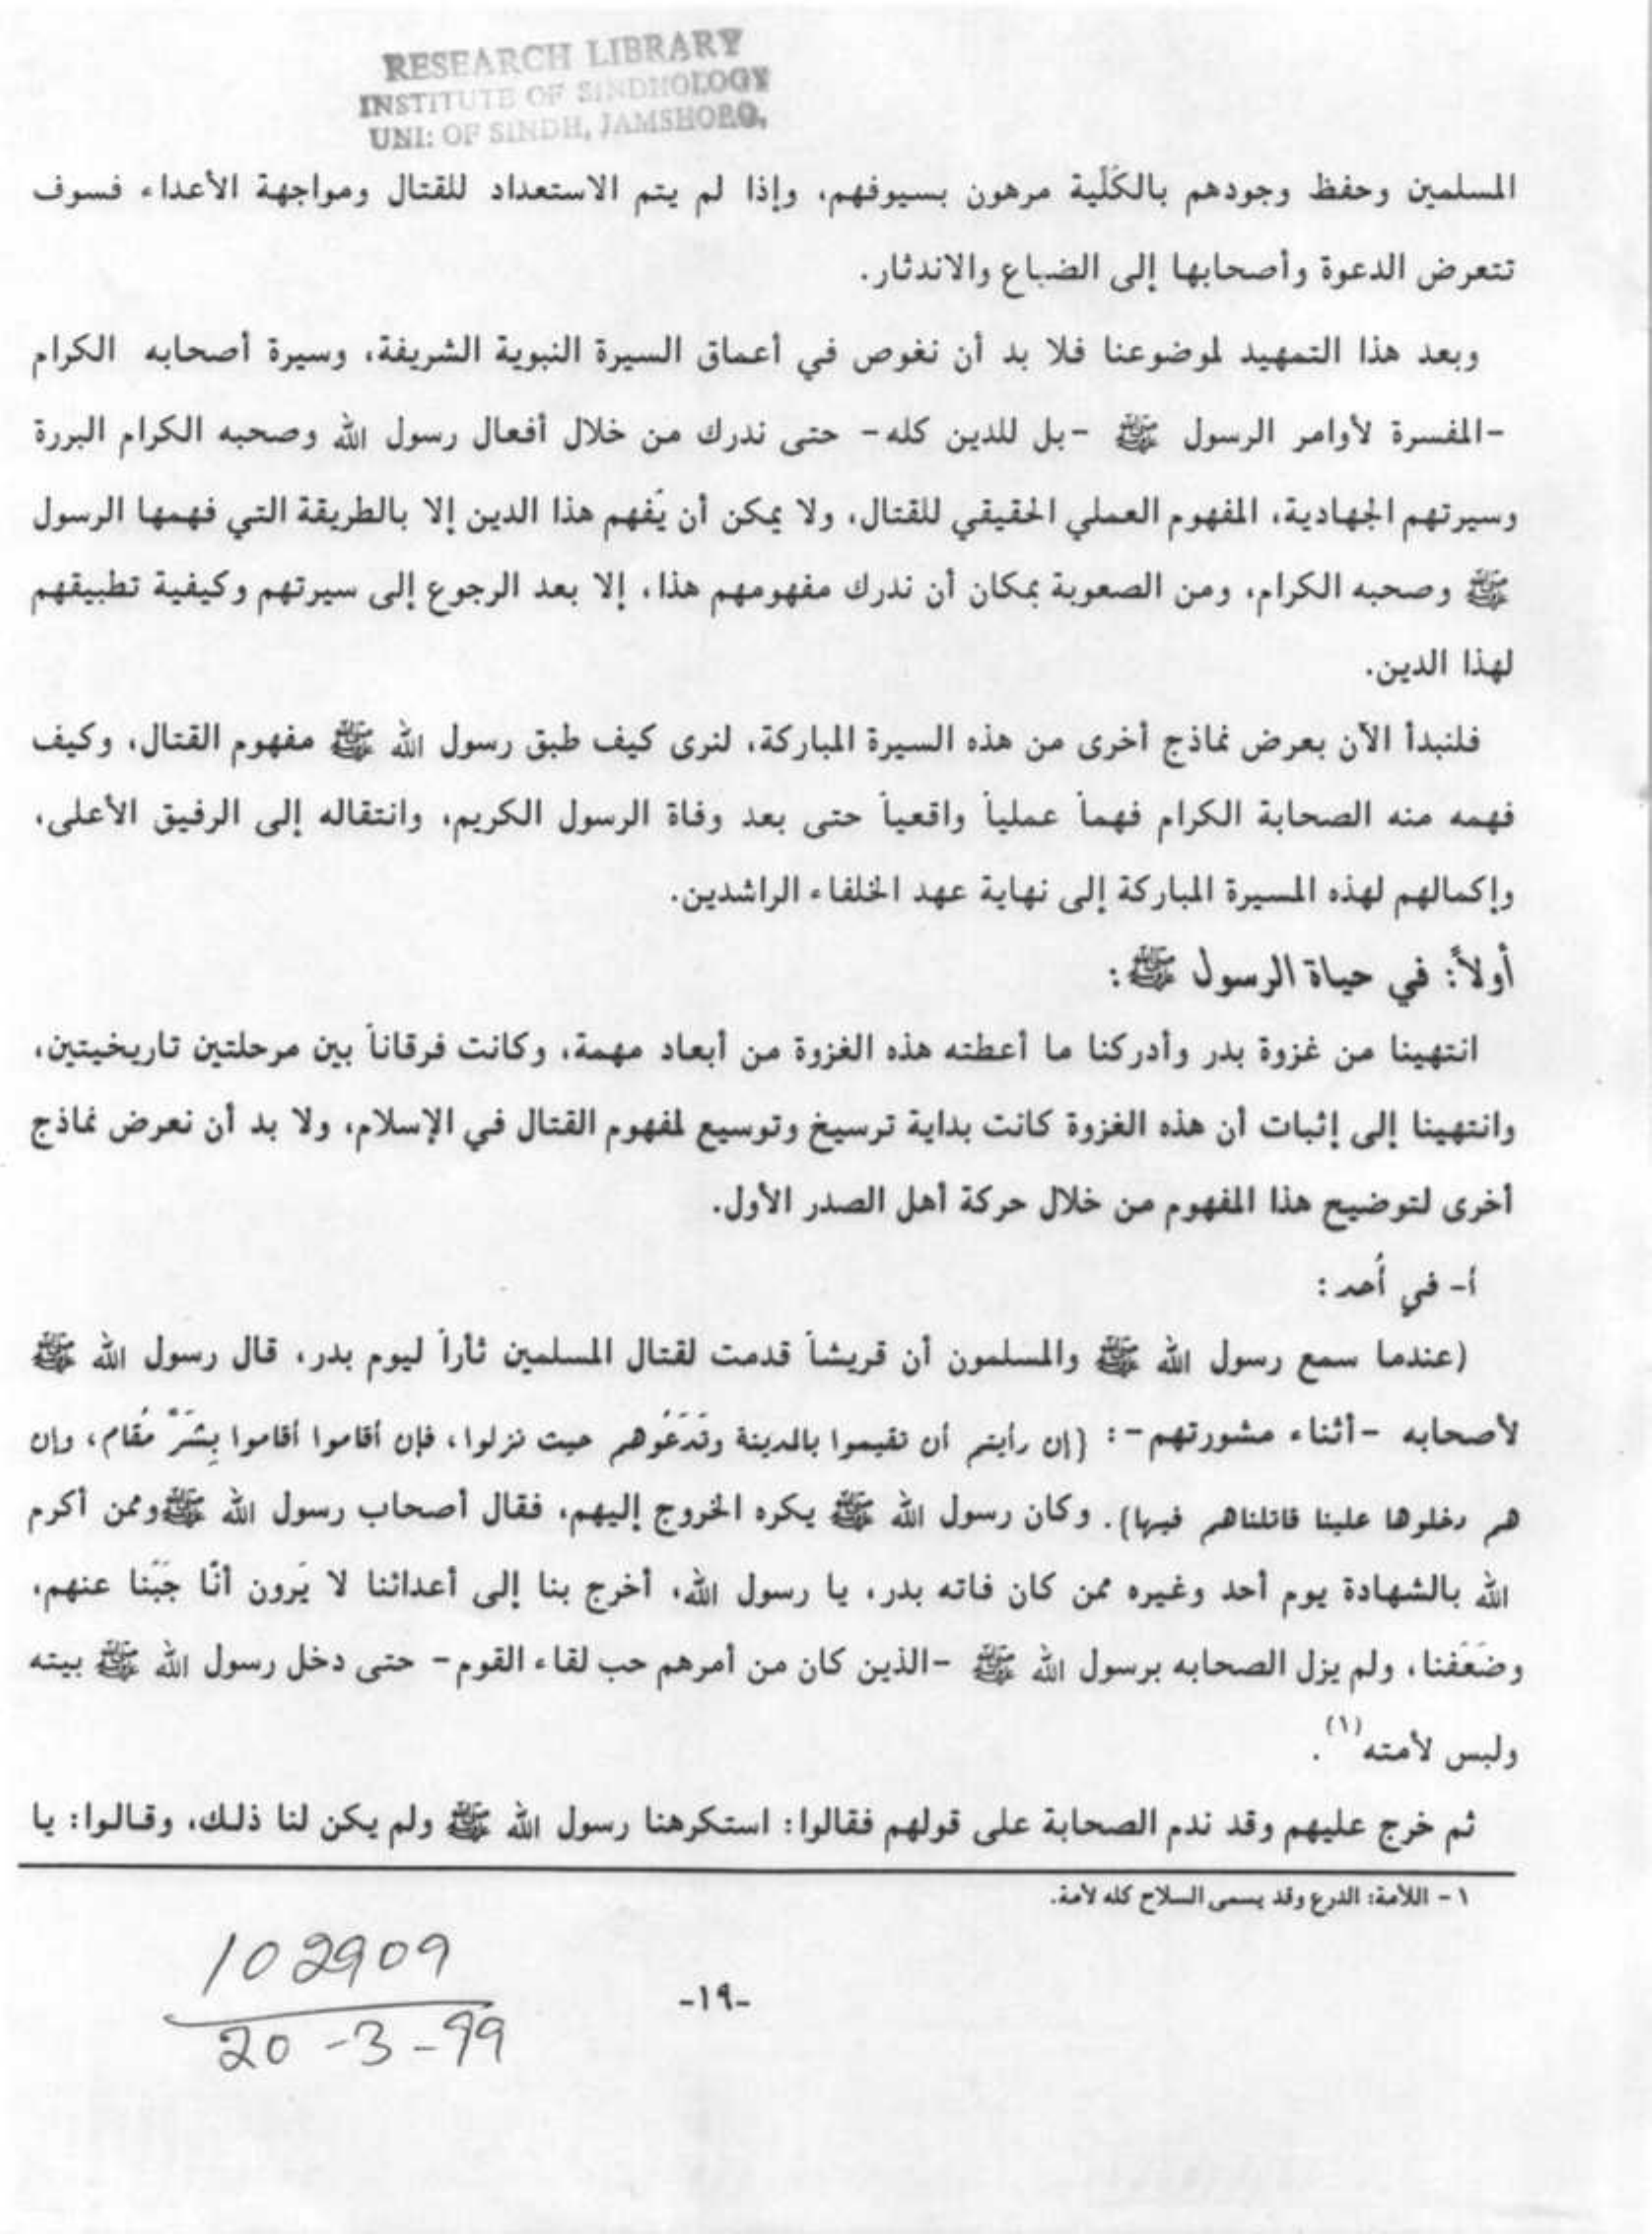 RESEARCH LIBRARY
INSTITUTE OF SINDHOLOGY
UNI: OF SINDH, JAMSHORO,
المسلمين وحفظ وجودهم بالكَلّية مرهون بسيوفهم، وإذا لم يتم الاستعداد للقتال ومواجهة الأعداء فسوف
تتعرض الدعوة وأصحابها إلى الضياع والاندثار.
وبعد هذا التمهيد لموضوعنا فلا بد أن نغوص في أعماق السيرة النبوية الشريفة، وسيرة أصحابه الكرام
-المفسرة لأوامر الرسول ﷺ -بل للدين كله- حتى ندرك من خلال أفعال رسول الله وصحبه الكرام البررة
وسيرتهم الجهادية، المفهوم العملي الحقيقي للقتال، ولا يمكن أن يُفهم هذا الدين إلا بالطريقة التي فهمها الرسول
ﷺ وصحبه الكرام، ومن الصعوبة بمكان أن ندرك مفهومهم هذا، إلا بعد الرجوع إلى سيرتهم وكيفية تطبيقهم
لهذا الدين.
فلنبدأ الآن بعرض نماذج أخرى من هذه السيرة المباركة، لنرى كيف طبق رسول الله ﷺ مفهوم القتال، وكيف
فهمه منه الصحابة الكرام فهماً عملياً واقعياً حتى بعد وفاة الرسول الكريم، وانتقاله إلى الرفيق الأعلى،
وإكمالهم لهذه المسيرة المباركة إلى نهاية عهد الخلفاء الراشدين.
أولاً: في حياة الرسول ﷺ:
انتهينا من غزوة بدر وأدركنا ما أعطته هذه الغزوة من أبعاد مهمة، وكانت فرقاناً بين مرحلتين تاريخيتين،
وانتهينا إلى إثبات أن هذه الغزوة كانت بداية ترسيغ وتوسيع لمفهوم القتال في الإسلام، ولا بد أن نعرض نماذج
أخرى لتوضيح هذا المفهوم من خلال حركة أهل الصدر الأول.
أ- في أُحد:
(عندما سمع رسول الله ﷺ والمسلمون أن قريشاً قدمت لقتال المسلمين ثأراً ليوم بدر، قال رسول الله ﷺ
لأصحابه -أثناء مشورتهم-: (إن رأيتم أن تقيموا بالمدينة وتَدَعُوهم حيث نزلوا، فإن أقاموا أقاموا بِشَرِّ مُقام، وإن
هم دخلوها علينا قاتلناهم فيها). وكان رسول الله ﷺ يكره الخروج إليهم، فقال أصحاب رسول الله ﷺوممن أكرم
الله بالشهادة يوم أحد وغيره ممن كان فاته بدر، يا رسول الله، أخرج بنا إلى أعدائنا لا يَرون أنّا جَبَنا عنهم،
وضَعَفنا، ولم يزل الصحابه برسول الله ﷺ -الذين كان من أمرهم حب لقاء القوم- حتى دخل رسول الله ﷺ بيته
ولبس لأمته(١).
ثم خرج عليهم وقد ندم الصحابة على قولهم فقالوا: استكرهنا رسول الله ﷺ ولم يكن لنا ذلك، وقالوا: يا
١- اللأمة: الدرع وقد يسمى السلاح كله لأمة.
102909
-١٩-
20-3-99